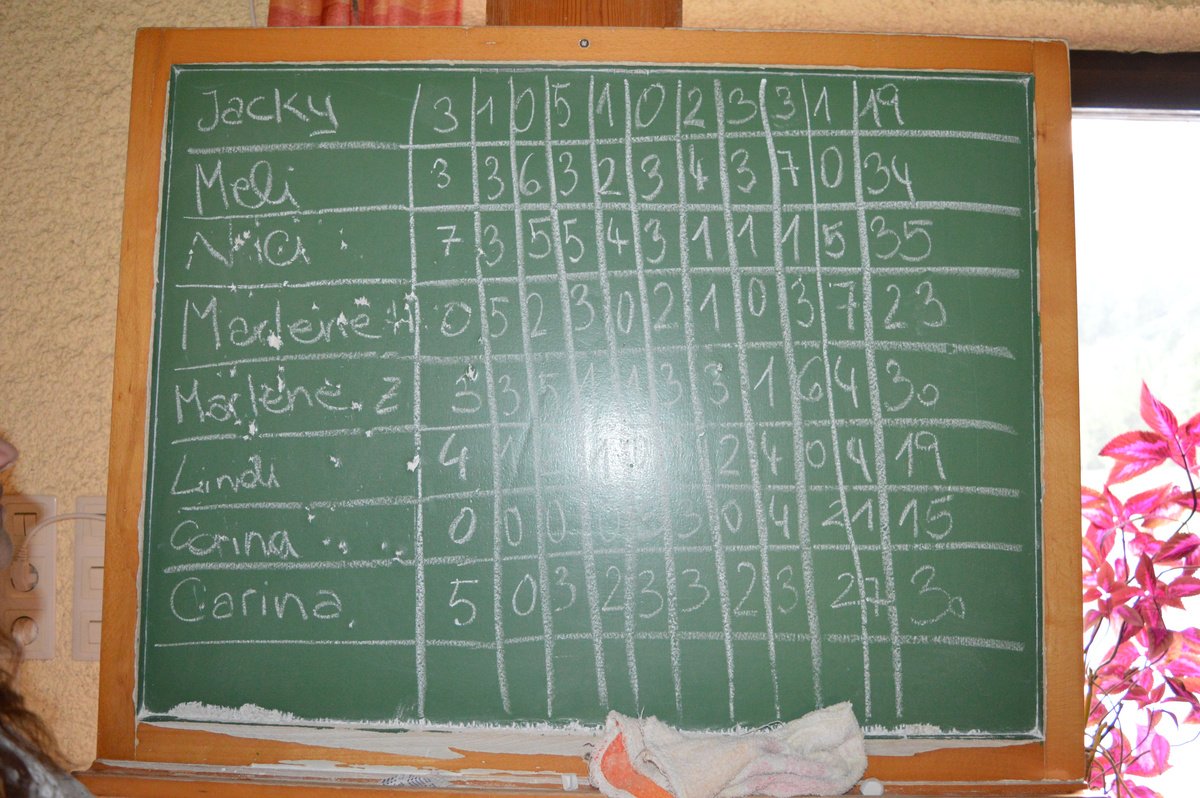 Jacky 3 1 0 5 1 0 2 3 3 1 19
Meli 3 3 6 3 2 3 4 3 7 0 34
Nici 7 3 5 5 4 3 1 1 1 5 35
Marlene H 0 5 2 3 0 2 1 0 3 7 23
Marlene Z 3 3 5 1 1 3 3 1 6 4 30
Lindi 4 1 1 2 4 0 4 19
Corina 0 0 0 0 4 2 1 15
Carina 5 0 3 2 3 3 2 3 2 7 30